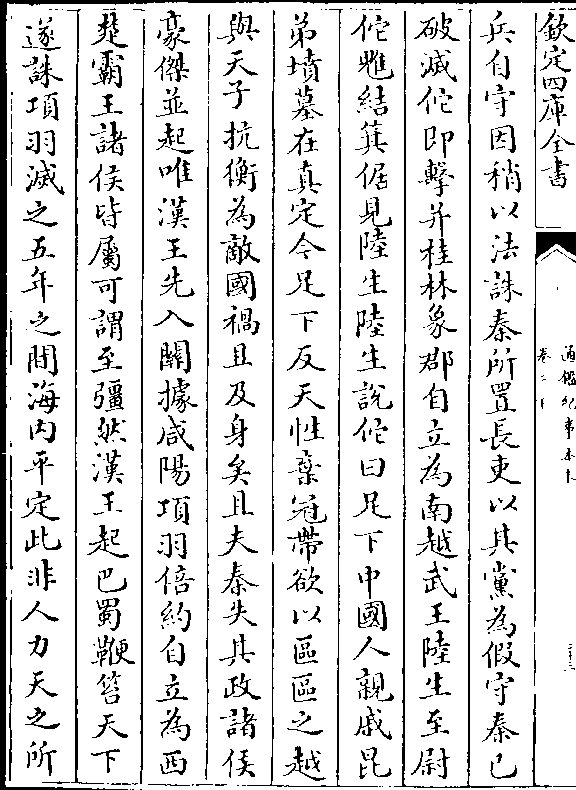 欽定四庫全書
通鑑紀事本末
兵自守因稍以法誅秦所置長吏以其黨為假守秦已
破滅佗即擊并桂林象郡自立為南越武王陸生至尉
佗魋結箕倨見陸生陸生說佗曰足下中國人親戚昆
弟墳墓在真定今足下反天性棄冠帶欲以區區之越
與天子抗衡為敵國禍且及身矣且夫秦失其政諸侯
豪傑並起唯漢王先入關據咸陽項羽倍約自立為西
楚霸王諸侯皆屬可謂至彊然漢王起巴蜀鞭笞天下
遂誅項羽滅之五年之間海內平定此非人力天之所